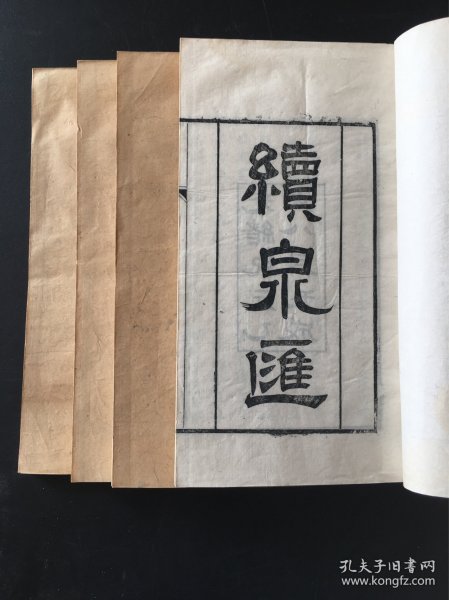 續泉匯
孔夫子旧书网
www.kongfz.com